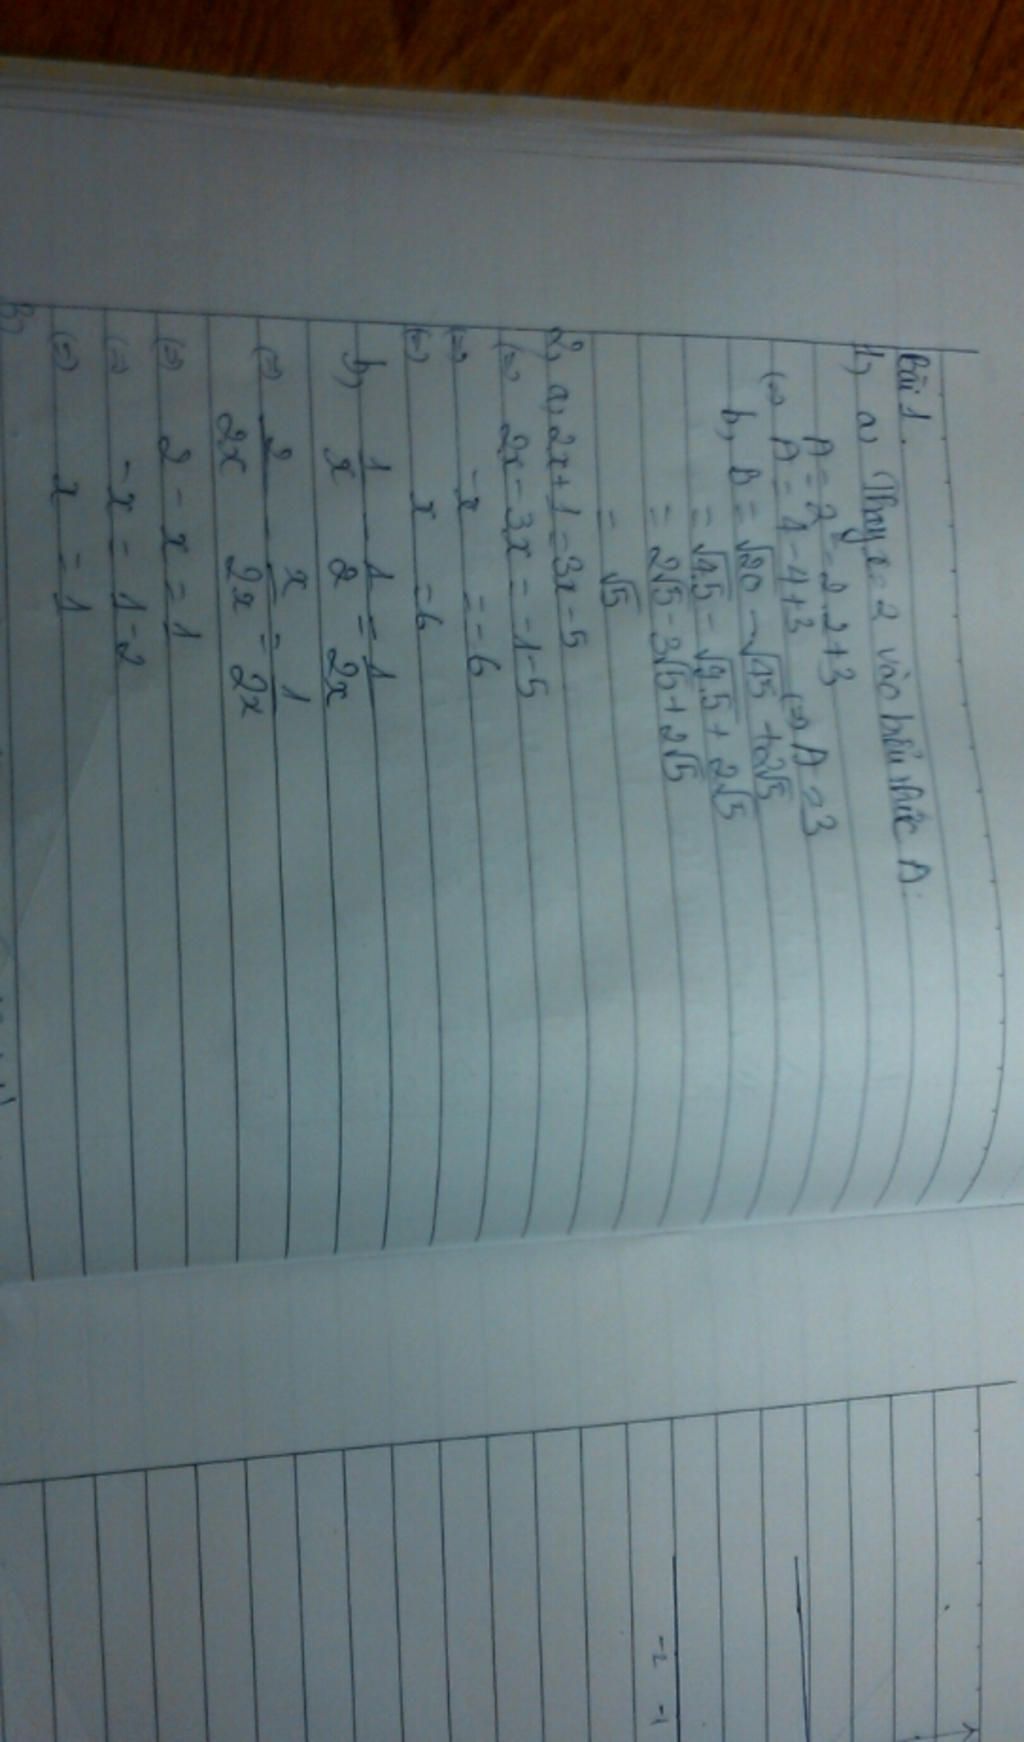 Bài 1.
1, a, Thay x = 2 vào biểu thức A.
A = 2² - 2.2 + 3
(=) A = 4 - 4 + 3 (=) A = 3
b, B = √20 - √45 + 2√5
= √4.5 - √9.5 + 2√5
= 2√5 - 3√5 + 2√5
= √5
2, a, 2x + 1 = 3x - 5
(=) 2x - 3x = -1 - 5
(=) -x = -6
(=) x = 6
b, 1/x - 1/2 = 1/2x
(=) 2/2x - x/2x = 1/2x
(=) 2 - x = 1
(=) -x = 1 - 2
(=) x = 1
-2 -1